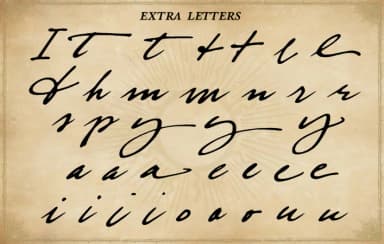 EXTRA LETTERS
I T t t t l e
d h m m m n r r
s p y y y
a a a e e e e
i i i i o a o u u